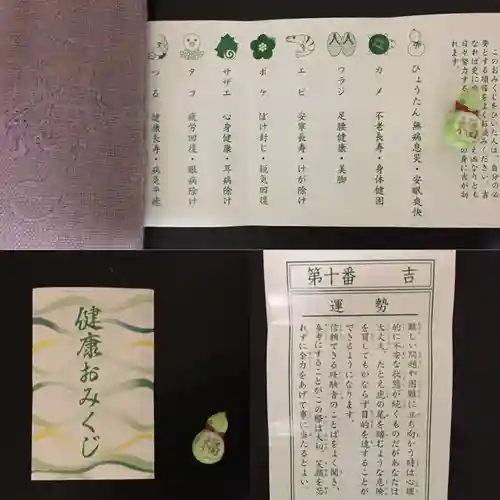 このおみくじをひいた人は、自分の必
要とする項目をよくお読みください。吉
なれば更に
日々努力する の身に吉が訪
れます。
ひょうたん 無病息災・安眠爽快
カメ 不老長寿・身体健固
ワラジ 足腰健康・美脚
エビ 安寧長寿・けが除け
ボケ ぼけ封じ・鋭気回復
サザエ 心身健康・耳病除け
タコ 疲労回復・眼病除け
つる 健康長寿・病気平癒
健康おみくじ
福
第十番 吉
運勢
難しい問題や困難に立ち向かう時は心理
的に不安な状態が続くものだがあなたは
大丈夫。たとえ虎の尾を踏むような危険
を冒してもかならず目的を達することが
できるようになります。
信頼できる経験者のことばをよく聞き、
参考にすることがこの際は大切。笑顔を忘
れずに全力をあげて事に当たるとよい。